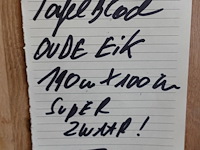 Tafelblad
OUDE EiK
190cm X 100cm
SUPER
ZWAAR!